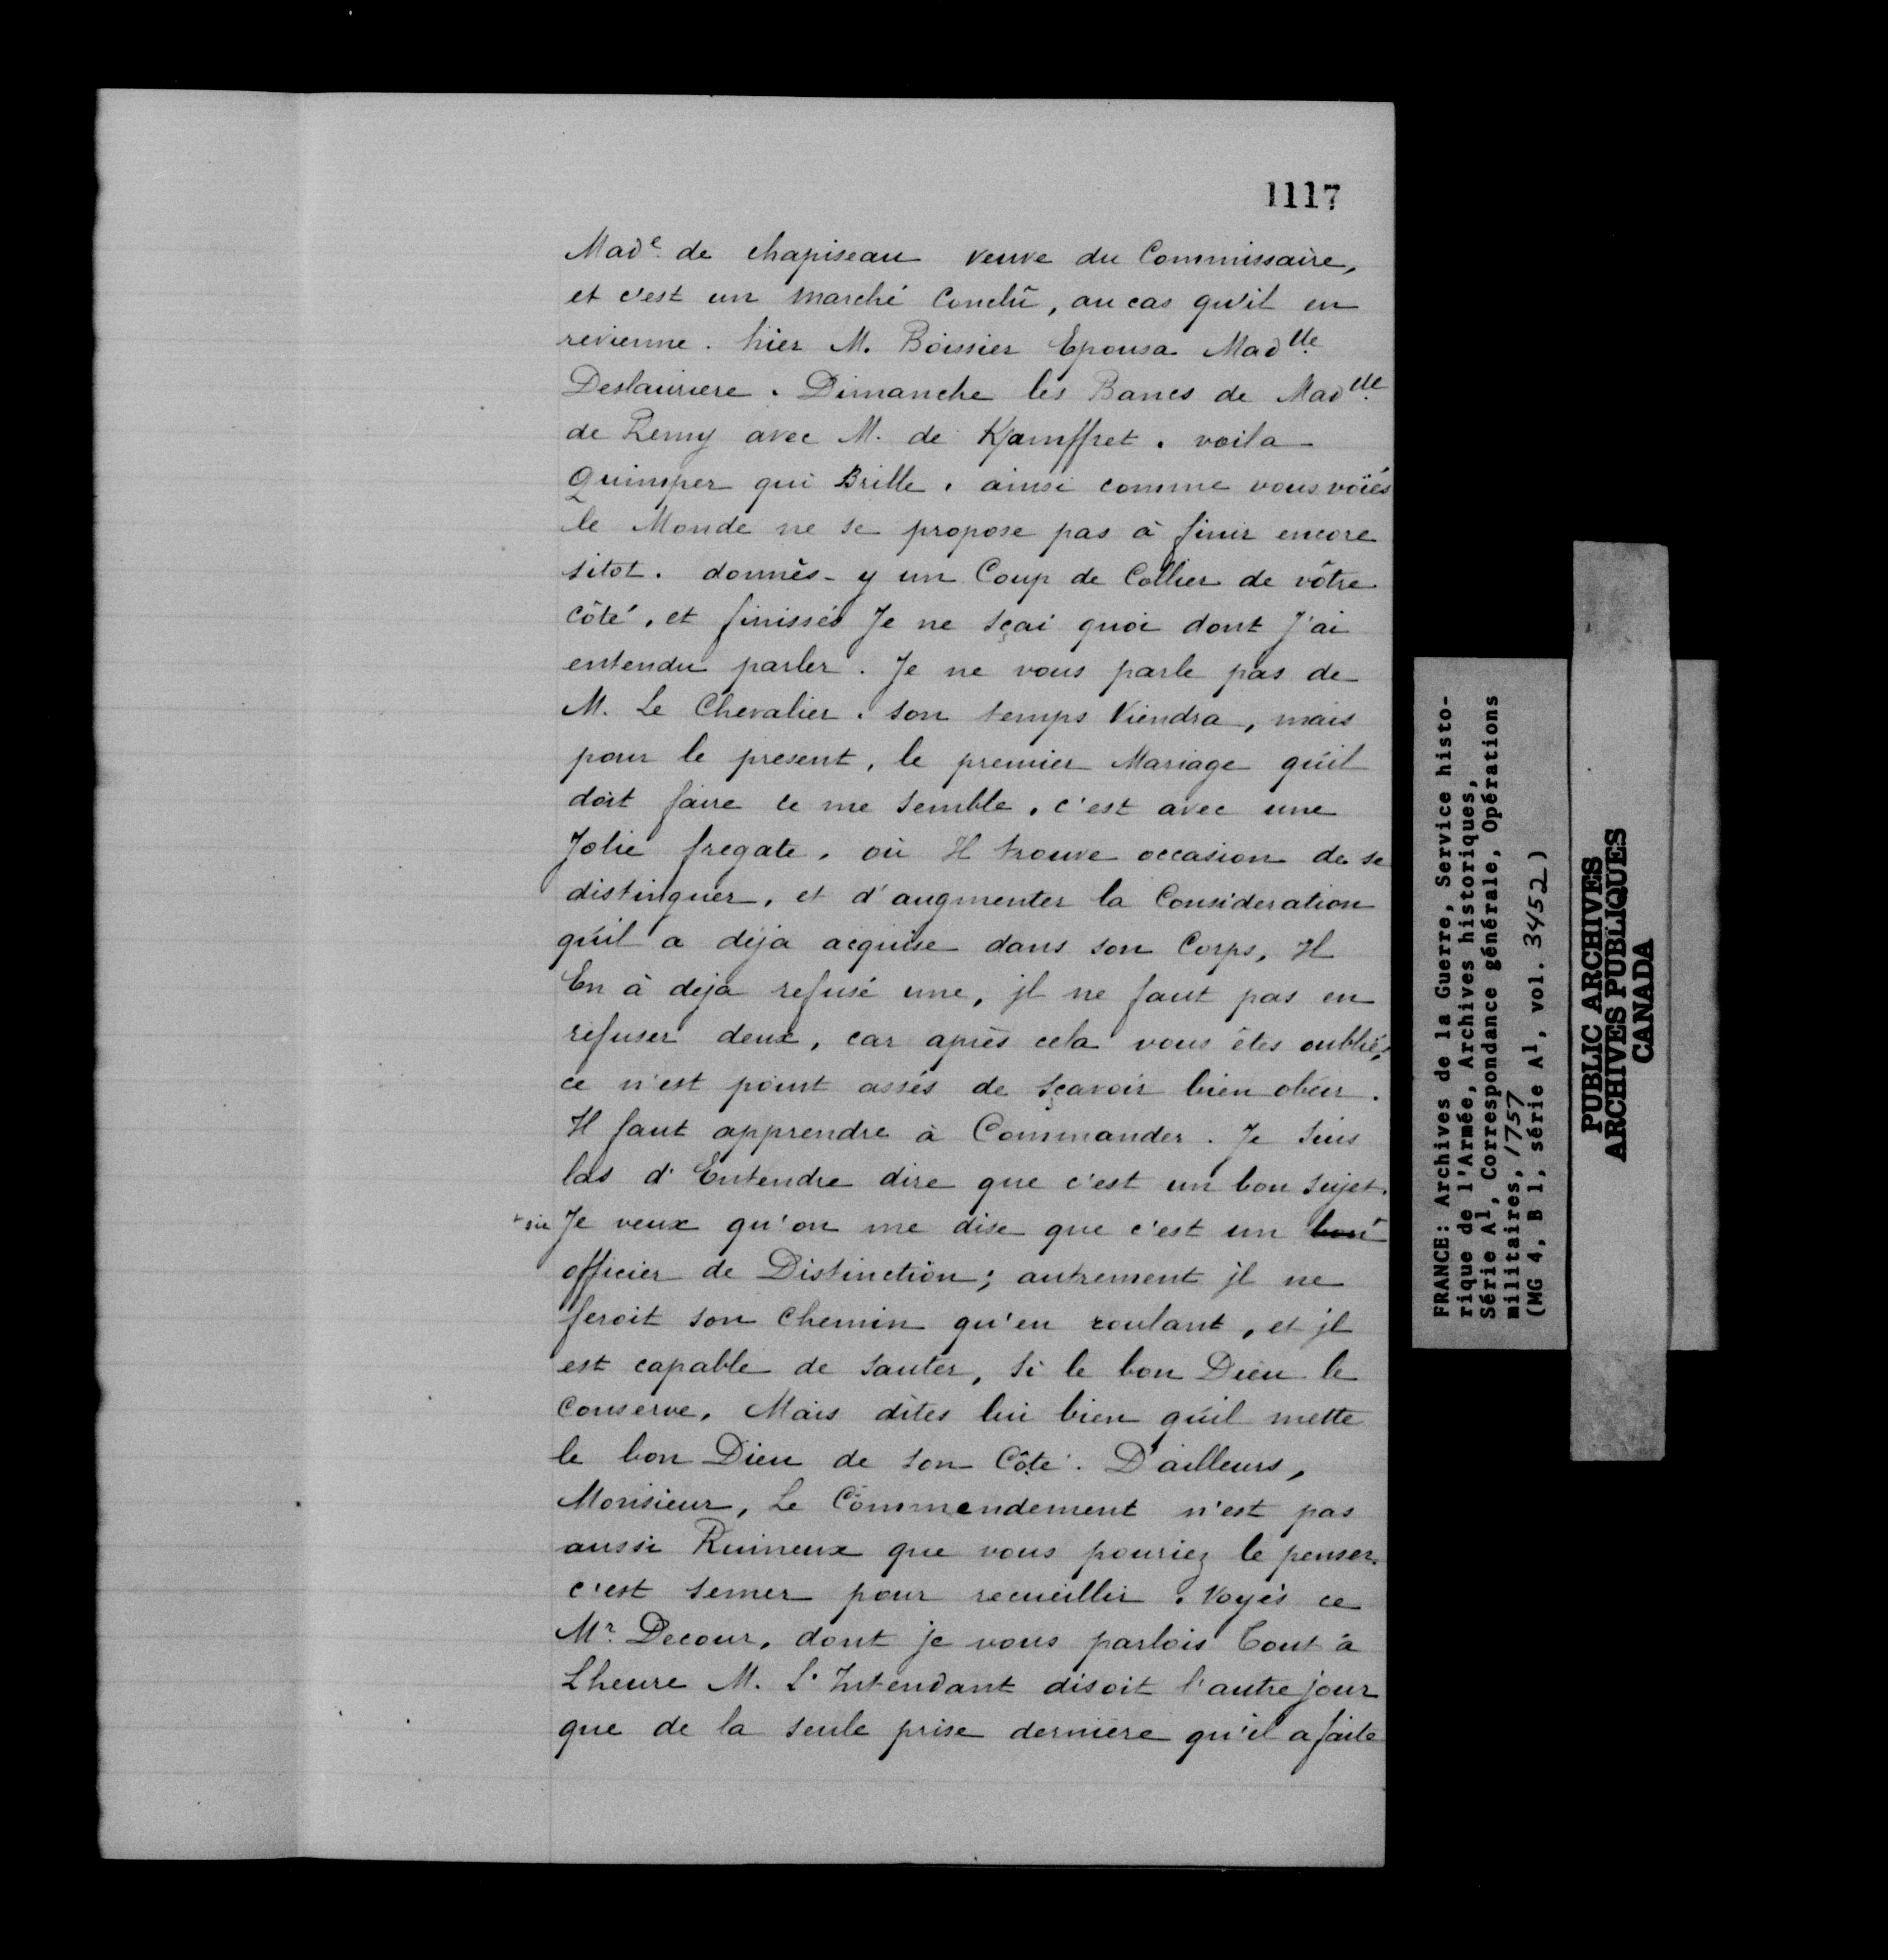 1117
Made. de chapiseau veuve du Commissaire,
et c'est un marché Conclû, au cas qu'il en
revienne. hier M. Boissier Epousa Madlle.
Deslauriere. Dimanche les Bancs de Madlle.
de Remy avec M. de Kjamffret. voila
Quimper qui Brille. ainsi comme vous voïés
le Monde ne se propose pas à finir encore
sitot. donnés-y un Coup de Collier de vôtre
côté, et finissés Je ne sçai quoi dont J'ai
entendu parler. Je ne vous parle pas de
M. Le Chevalier. son temps Viendra, mais
pour le present, le premier Mariage qu'il
doit faire ce me semble, c'est avec une
Jolie fregate, où Il trouve occasion de se
distinguer, et d'augmenter la Consideration
qu'il a déja acquise dans son Corps, Il
En à deja refusé une, jl ne faut pas en
refuser deux, car après cela vous êtes oublié,
ce n'est point assés de sçavoir bien obéir.
Il faut apprendre à Commander. Je suis
las d'Entendre dire que c'est un bon sujet.
Je veux qu'on me dise que c'est un bon
officier de Distinction; autrement jl ne
feroit son chemin qu'en roulant, et jl
est capable de sauter, si le bon Dieu le
Conserve. Mais dites lui bien qu'il mette
le bon Dieu de son Côté. D'ailleurs,
Monsieur, Le Commendement n'est pas
aussi Ruineux que vous pouriez le penser.
c'est semer pour recueillir. Voyés ce
Mr. Decour, dont je vous parlois Tout à
Lheure M. L'Intendant disoit l'autre jour
que de la seule prise derniere qu'il a faite
FRANCE: Archives de la Guerre, Service histo-
rique de l'Armée, Archives historiques,
Série A1, Correspondance générale, Opérations
militaires, 1757
(MG 4, B 1, série A1, vol. 3452)
PUBLIC ARCHIVES
ARCHIVES PUBLIQUES
CANADA